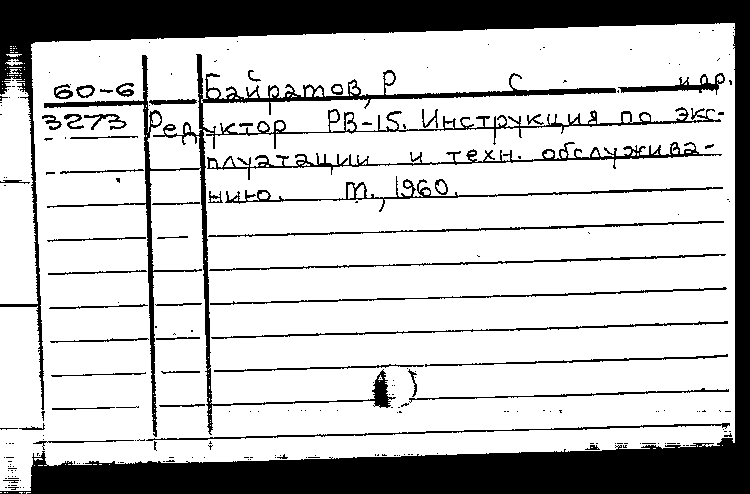 60-6 Байратов, Р С и др.
3273 Редуктор РВ-15. Инструкция по экс-
плуатации и техн. обслужива-
нию. М., 1960.